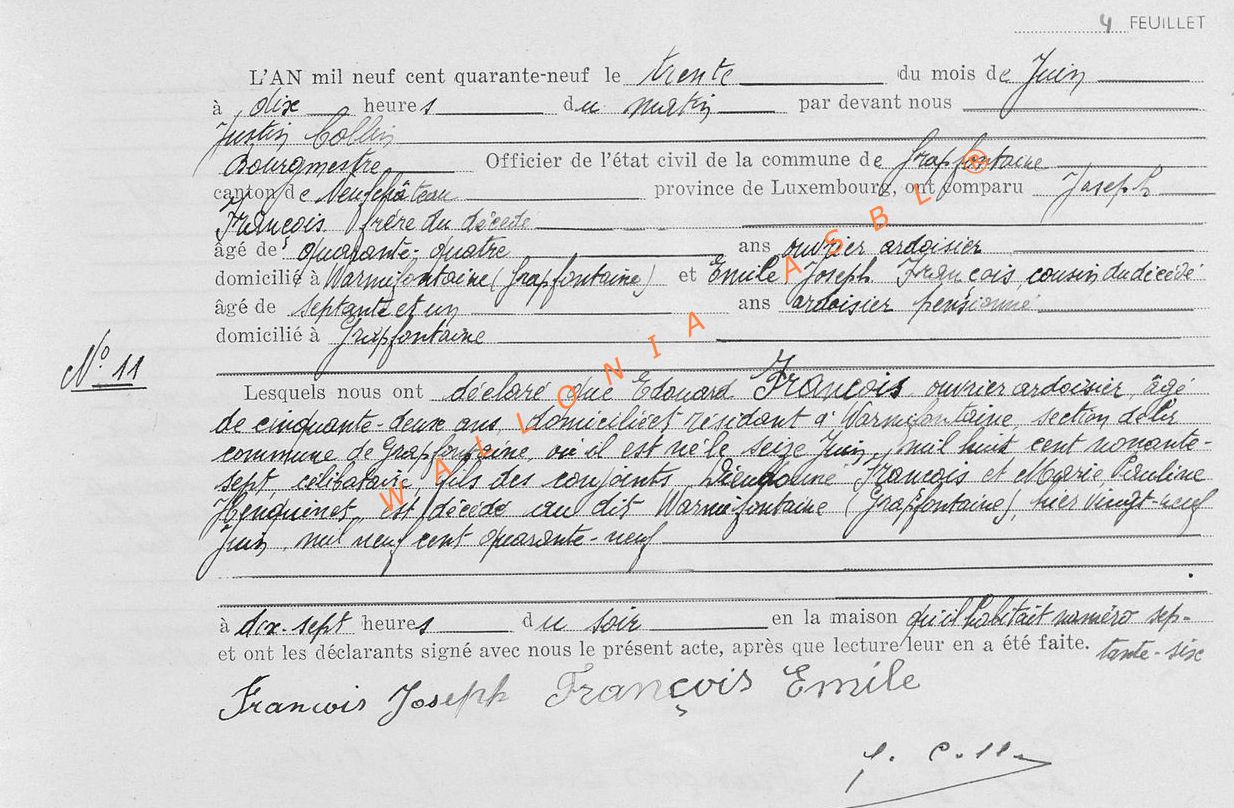 4 FEUILLET
L'AN mil neuf cent quarante-neuf le trente du mois de Juin
à dix heures du matin par devant nous
Justin Collin
Bourgmestre Officier de l'état civil de la commune de Grapfontaine
canton de Neufchâteau province de Luxembourg, ont comparu Joseph
François frère du décédé
âgé de quarante-quatre ans ouvrier ardoisier
domicilié à Warmifontaine (Grapfontaine) et Emile Joseph François, cousin du décédé
âgé de septante et un ans ardoisier pensionné
domicilié à Grapfontaine
N° 11
Lesquels nous ont déclaré que Edouard François ouvrier ardoisier, âgé
de cinquante-deux ans, domicilié et résidant à Warmifontaine, section de la
commune de Grapfontaine, où il est né le seize Juin, mil huit cent nonante-
sept, célibataire, fils des conjoints, Dieudonné François et Marie Pauline
Henquinet, est décédé au dit Warmifontaine (Grapfontaine), hier vingt-neuf
Juin, mil neuf cent quarante-neuf
à dix-sept heures du soir en la maison qu'il habitait numéro sep-
tante-six
et ont les déclarants signé avec nous le présent acte, après que lecture leur en a été faite.
Francois Joseph François Emile
J. Collin
WALLONIA ASBL ®